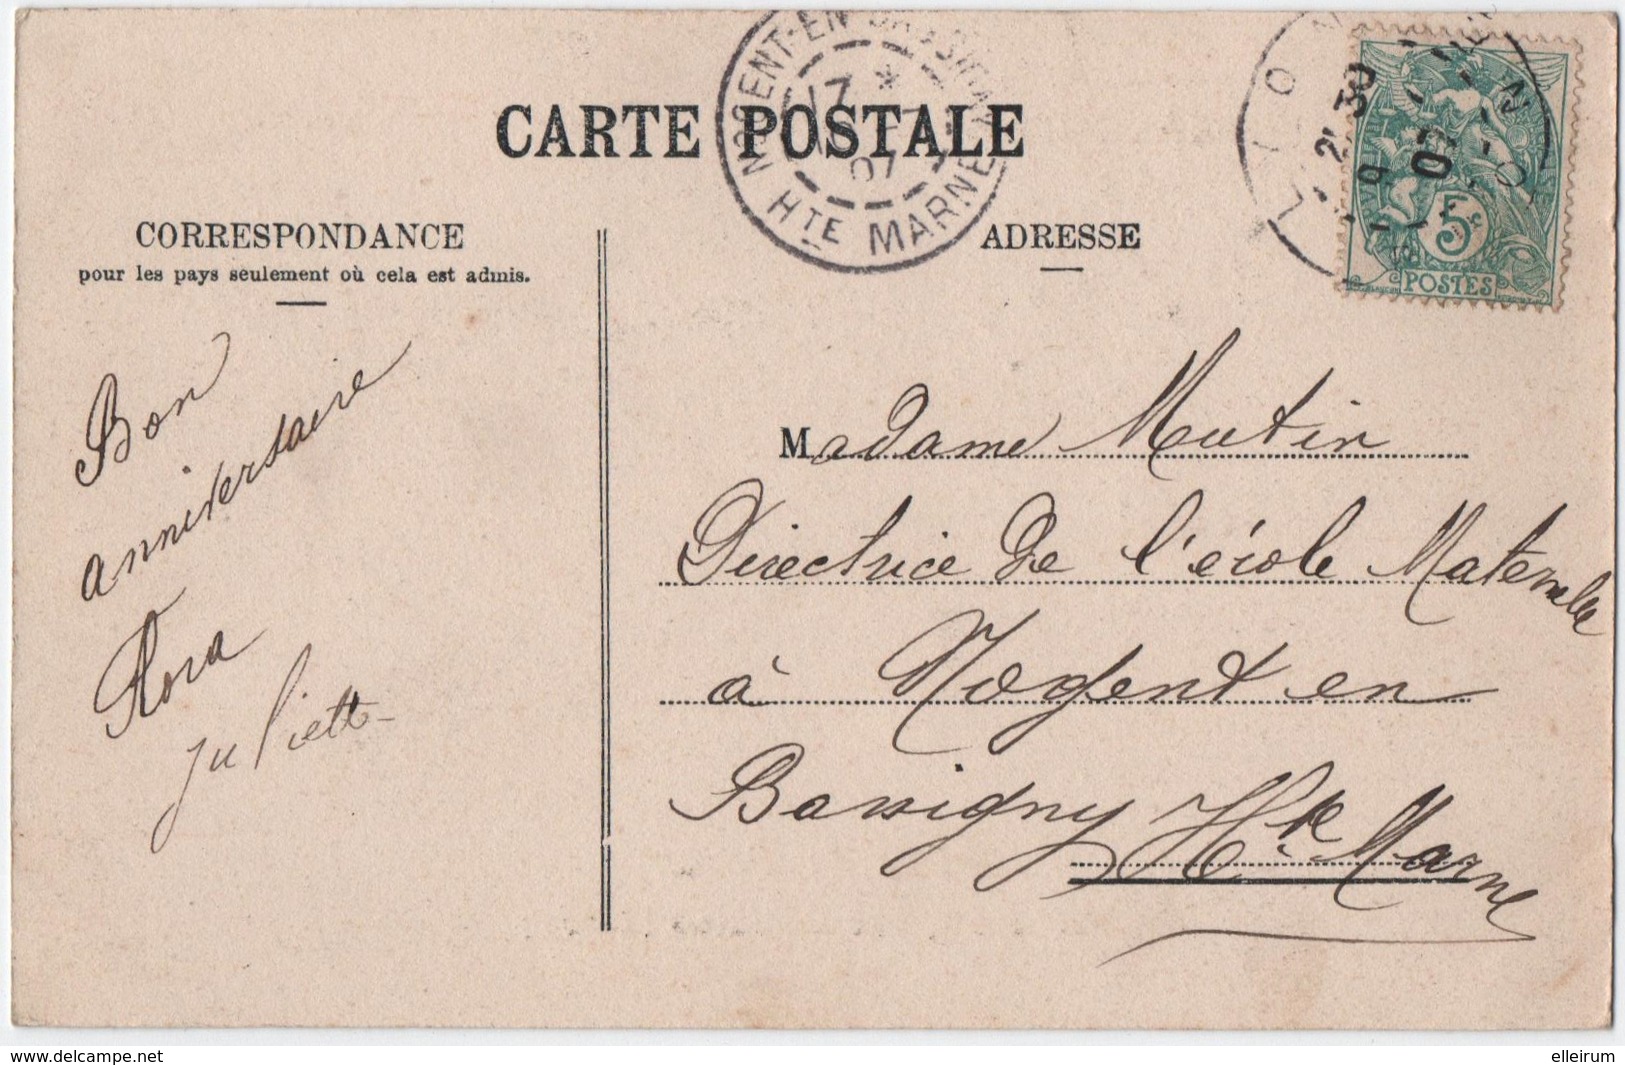 CARTE POSTALE
NOGENT-EN-BASSIGNY
17 *
07
HTE MARNE
LYON
2 30
07
5c
POSTES
CORRESPONDANCE
pour les pays seulement où cela est admis.
ADRESSE
Bon
anniversaire
Flora
Juliette
Madame Mutin
Directrice de l'école Maternelle
à Nogent en
Bassigny Hte Marne
www.delcampe.net
elleirum